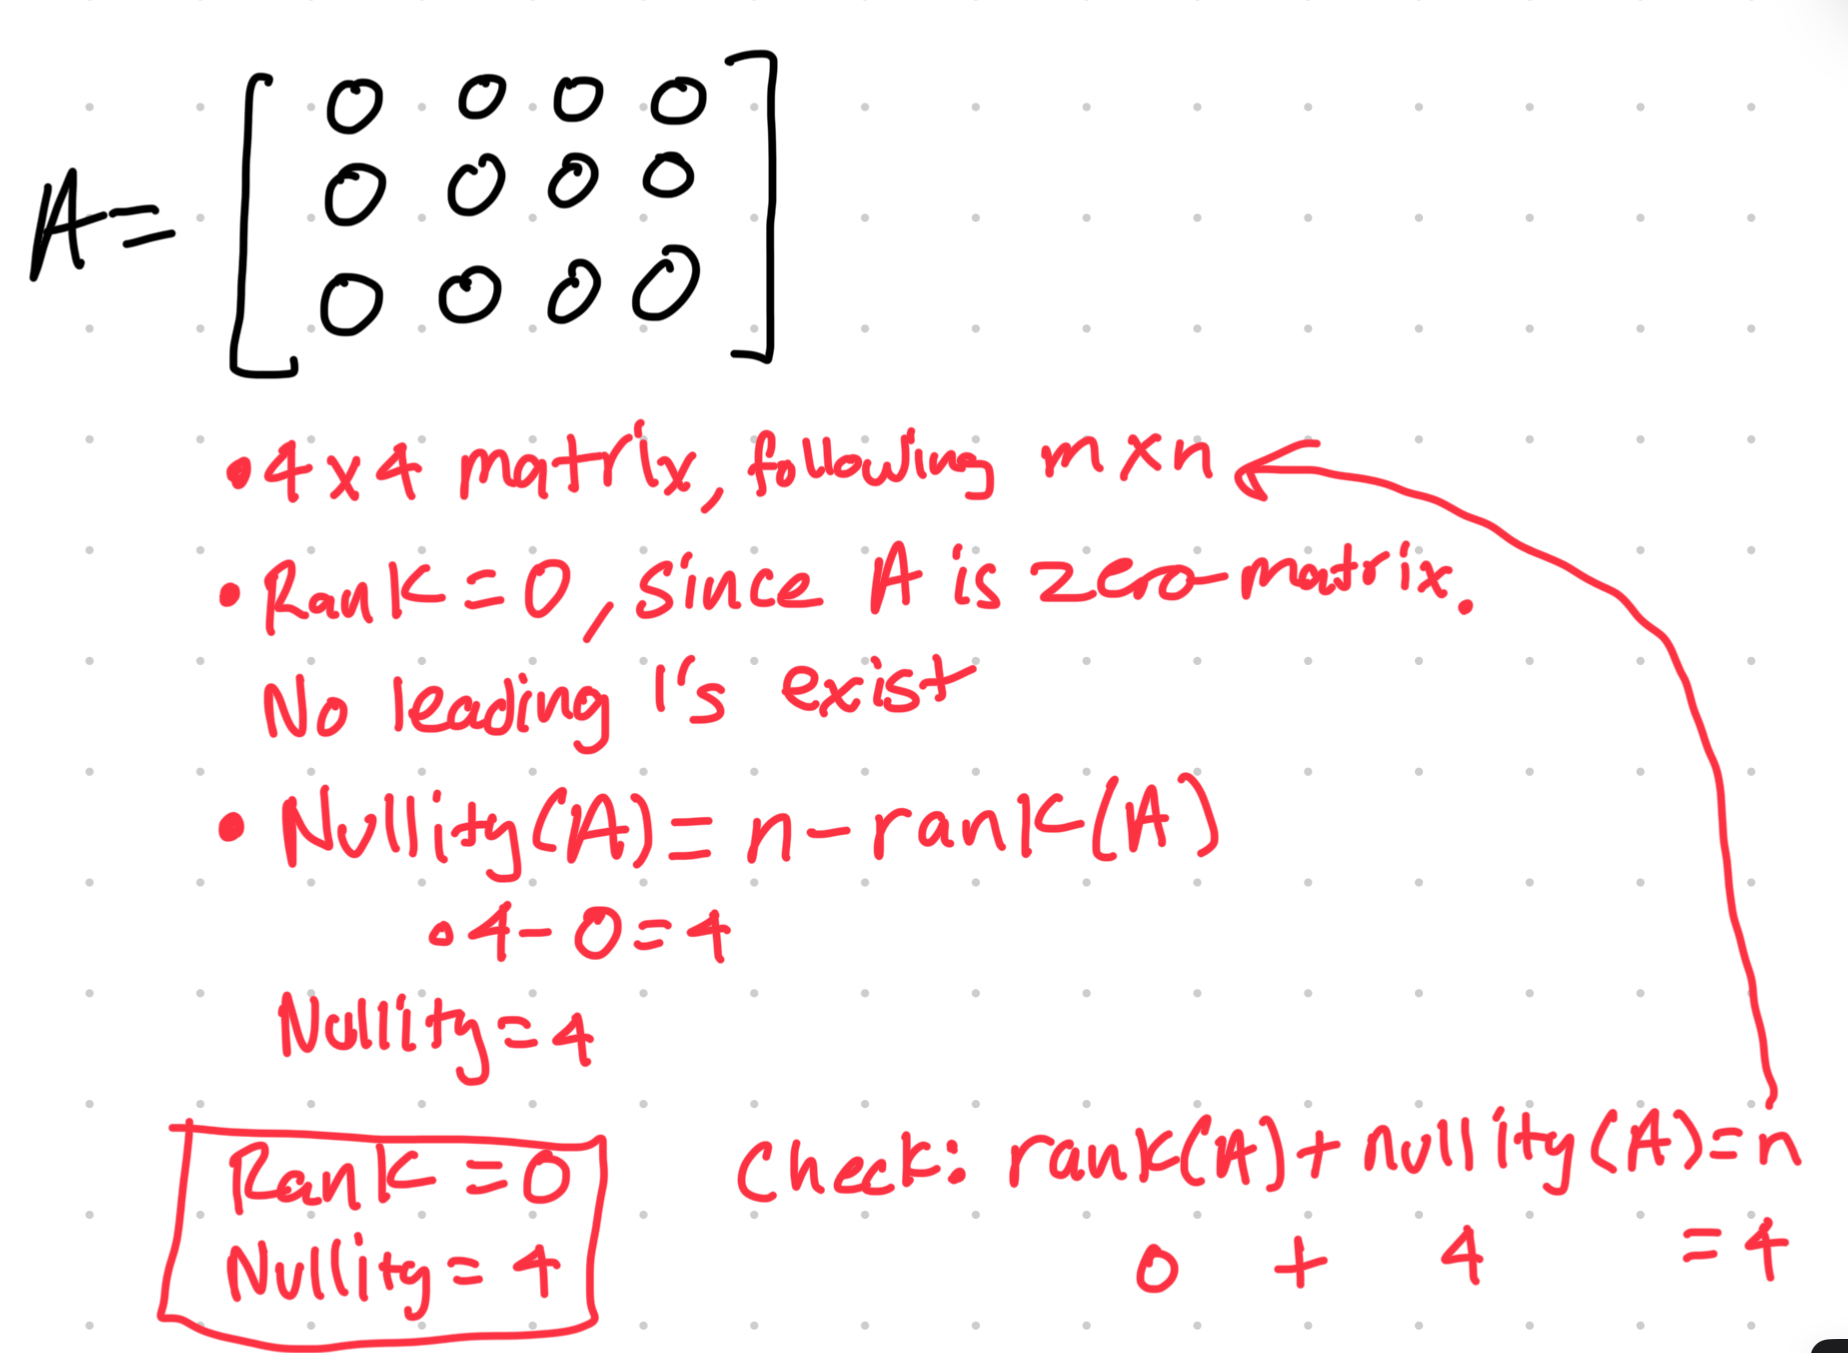 A=
0 0 0 0
0 0 0 0
0 0 0 0
•4x4 matrix, following mxn
•Rank=0, since A is zero matrix.
No leading 1's exist
•Nullity(A)=n-rank(A)
•4-0=4
Nullity=4
Rank=0
Nullity=4
Check: rank(A)+nullity(A)=n
0 + 4 =4